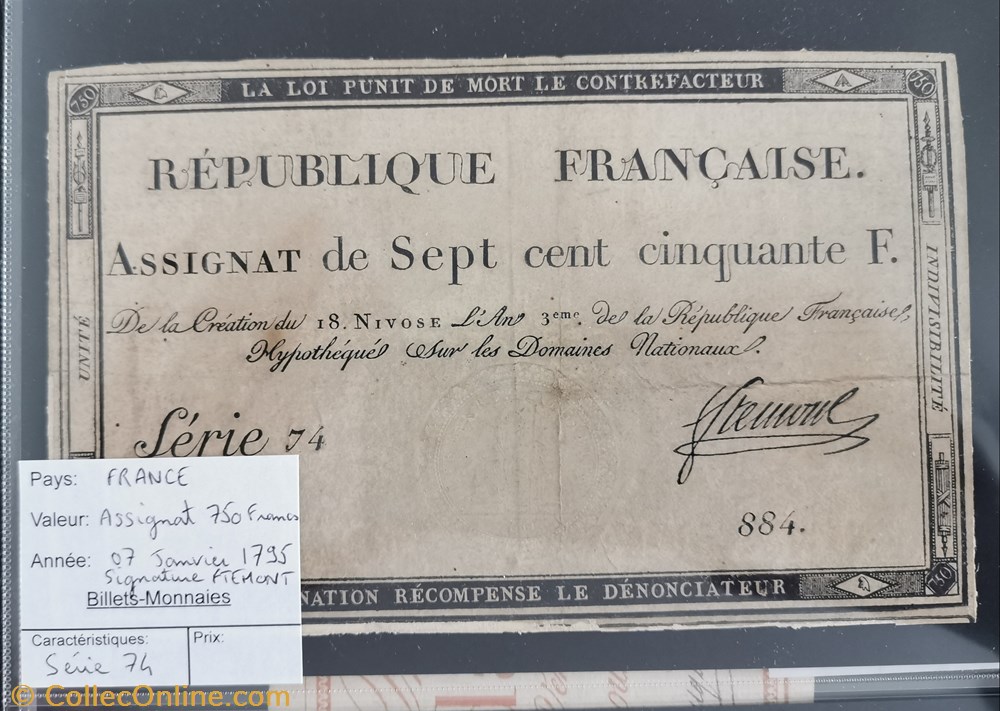 LA LOI PUNIT DE MORT LE CONTREFACTEUR
750
750
RÉPUBLIQUE FRANÇAISE.
ASSIGNAT de Sept cent cinquante F.
De la Création du 18. NIVOSE L'An 3eme. de la République Française,
Hypothéqué sur les Domaines Nationaux.
UNITÉ
INDIVISIBILITÉ
Série 74
884.
NATION RÉCOMPENSE LE DÉNONCIATEUR
750
Pays: FRANCE
Valeur: Assignat 750 Francs
Année: 07 Janvier 1795
Signature ETEMONT
Billets-Monnaies
Caractéristiques:
Prix:
Série 74
© CollecOnline.com